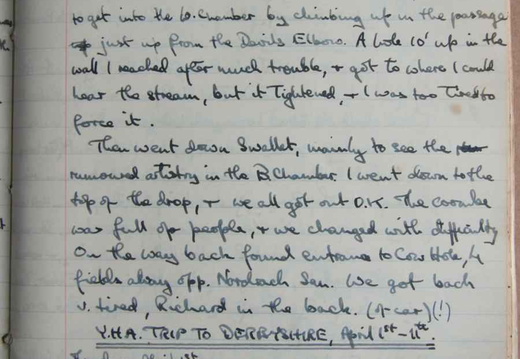 to get into the B. Chamber by climbing up in the passage
just up from the Davids Elbow. A hole 10' up in the
wall I reached after much trouble, + got to where I could
hear the stream, but it Tightened, + I was too Tired to
force it.
Then went down Swallet, mainly to see the
rumoured artistry in the B Chamber. I went down to the
top of the drop, + we all got out O.K. The coombe
was full of people, + we changed with difficulty
On the way back found entrance to Cow Hole, 4
fields away opp. Nordrach San. We got back
v. tired, Richard in the back. (of car)(!)
Y.H.A. TRIP TO DERBYSHIRE, April 1st - 11th
April 1st